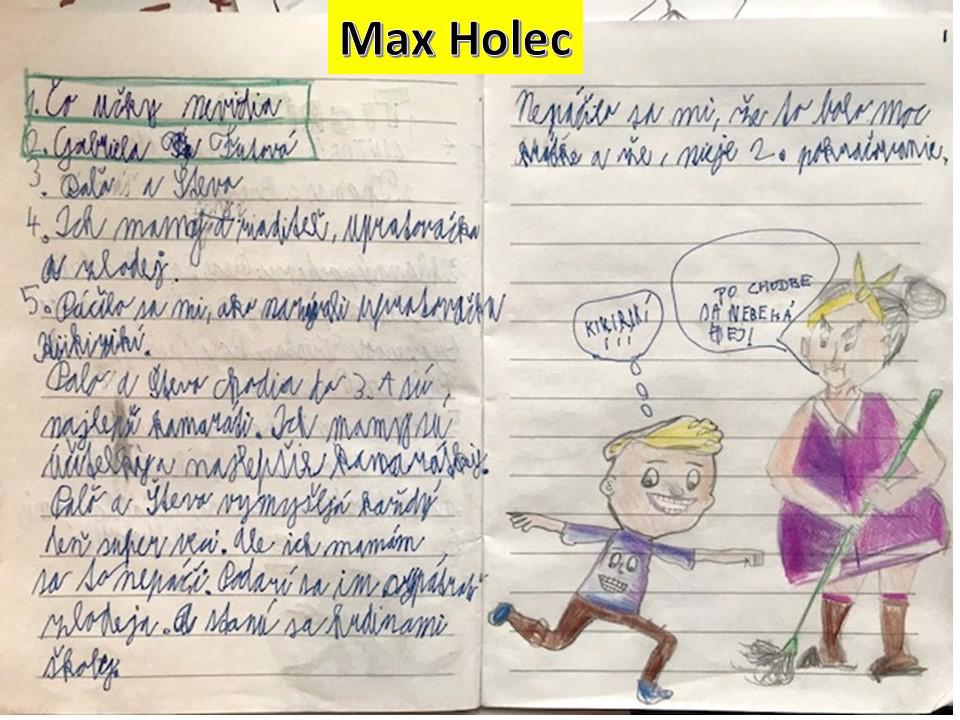 Max Holec
1. Čo učky nevidia
2. Gabriela Futová
3. Paľo a Števo
4. Ich mamy a riaditeľ, upratovačka
a zlodej.
5. Páčilo sa mi, ako nazývali upratovačku
Kikirikí.
Paľo a Števo chodia do 3. A sú
najlepší kamaráti. Ich mamy sú
učiteľky a najlepšie kamarátky.
Paľo a Števo vymýšľajú každý
deň super veci. Ale ich mamám
sa to nepáči. Podarí sa im vypátrať
zlodeja. A stanú sa hrdinami
školy.
Nepáčilo sa mi, že to bolo moc
krátke a že, nieje 2. pokračovanie.
KIKIRIKÍ
!!!
PO CHODBE
SA NEBEHÁ
HEJ!